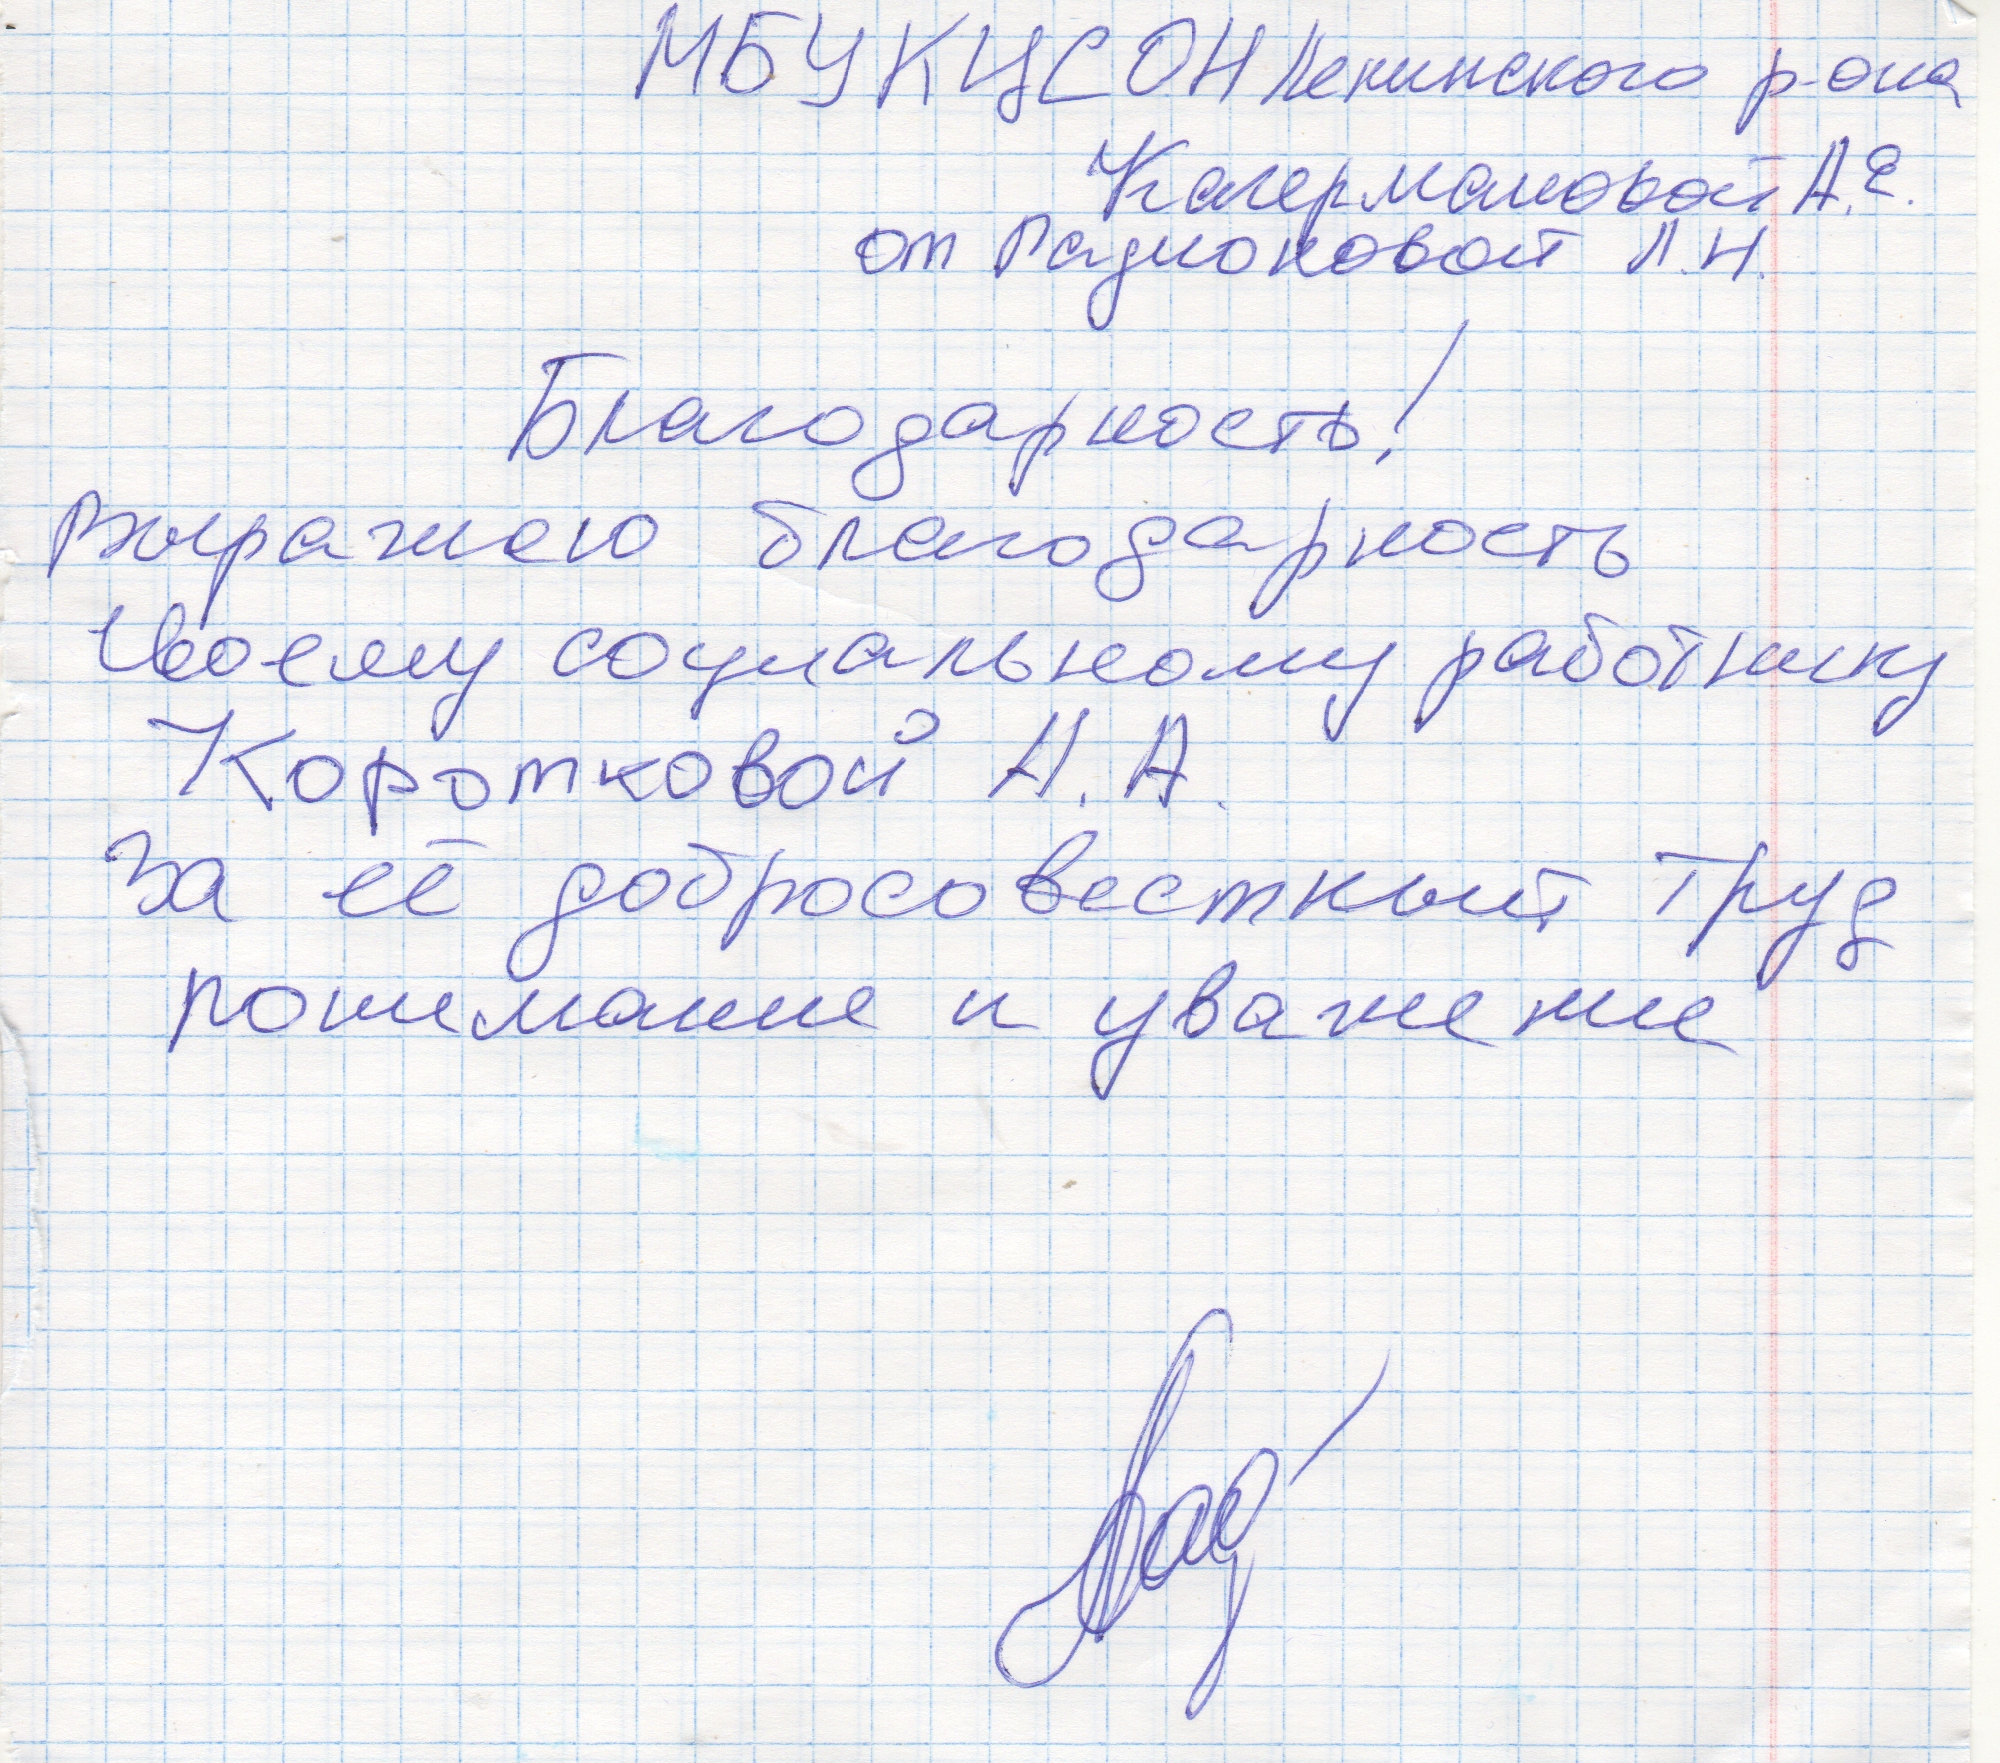 МБУ КЦСОН Ленинского р-она
Кагермановой А.Е.
от Радионовой Л.Н.
Благодарность!
Выражаю благодарность
своему социальному работнику
Коротковой Н.А.
За её добросовестный труд
понимание и уважение